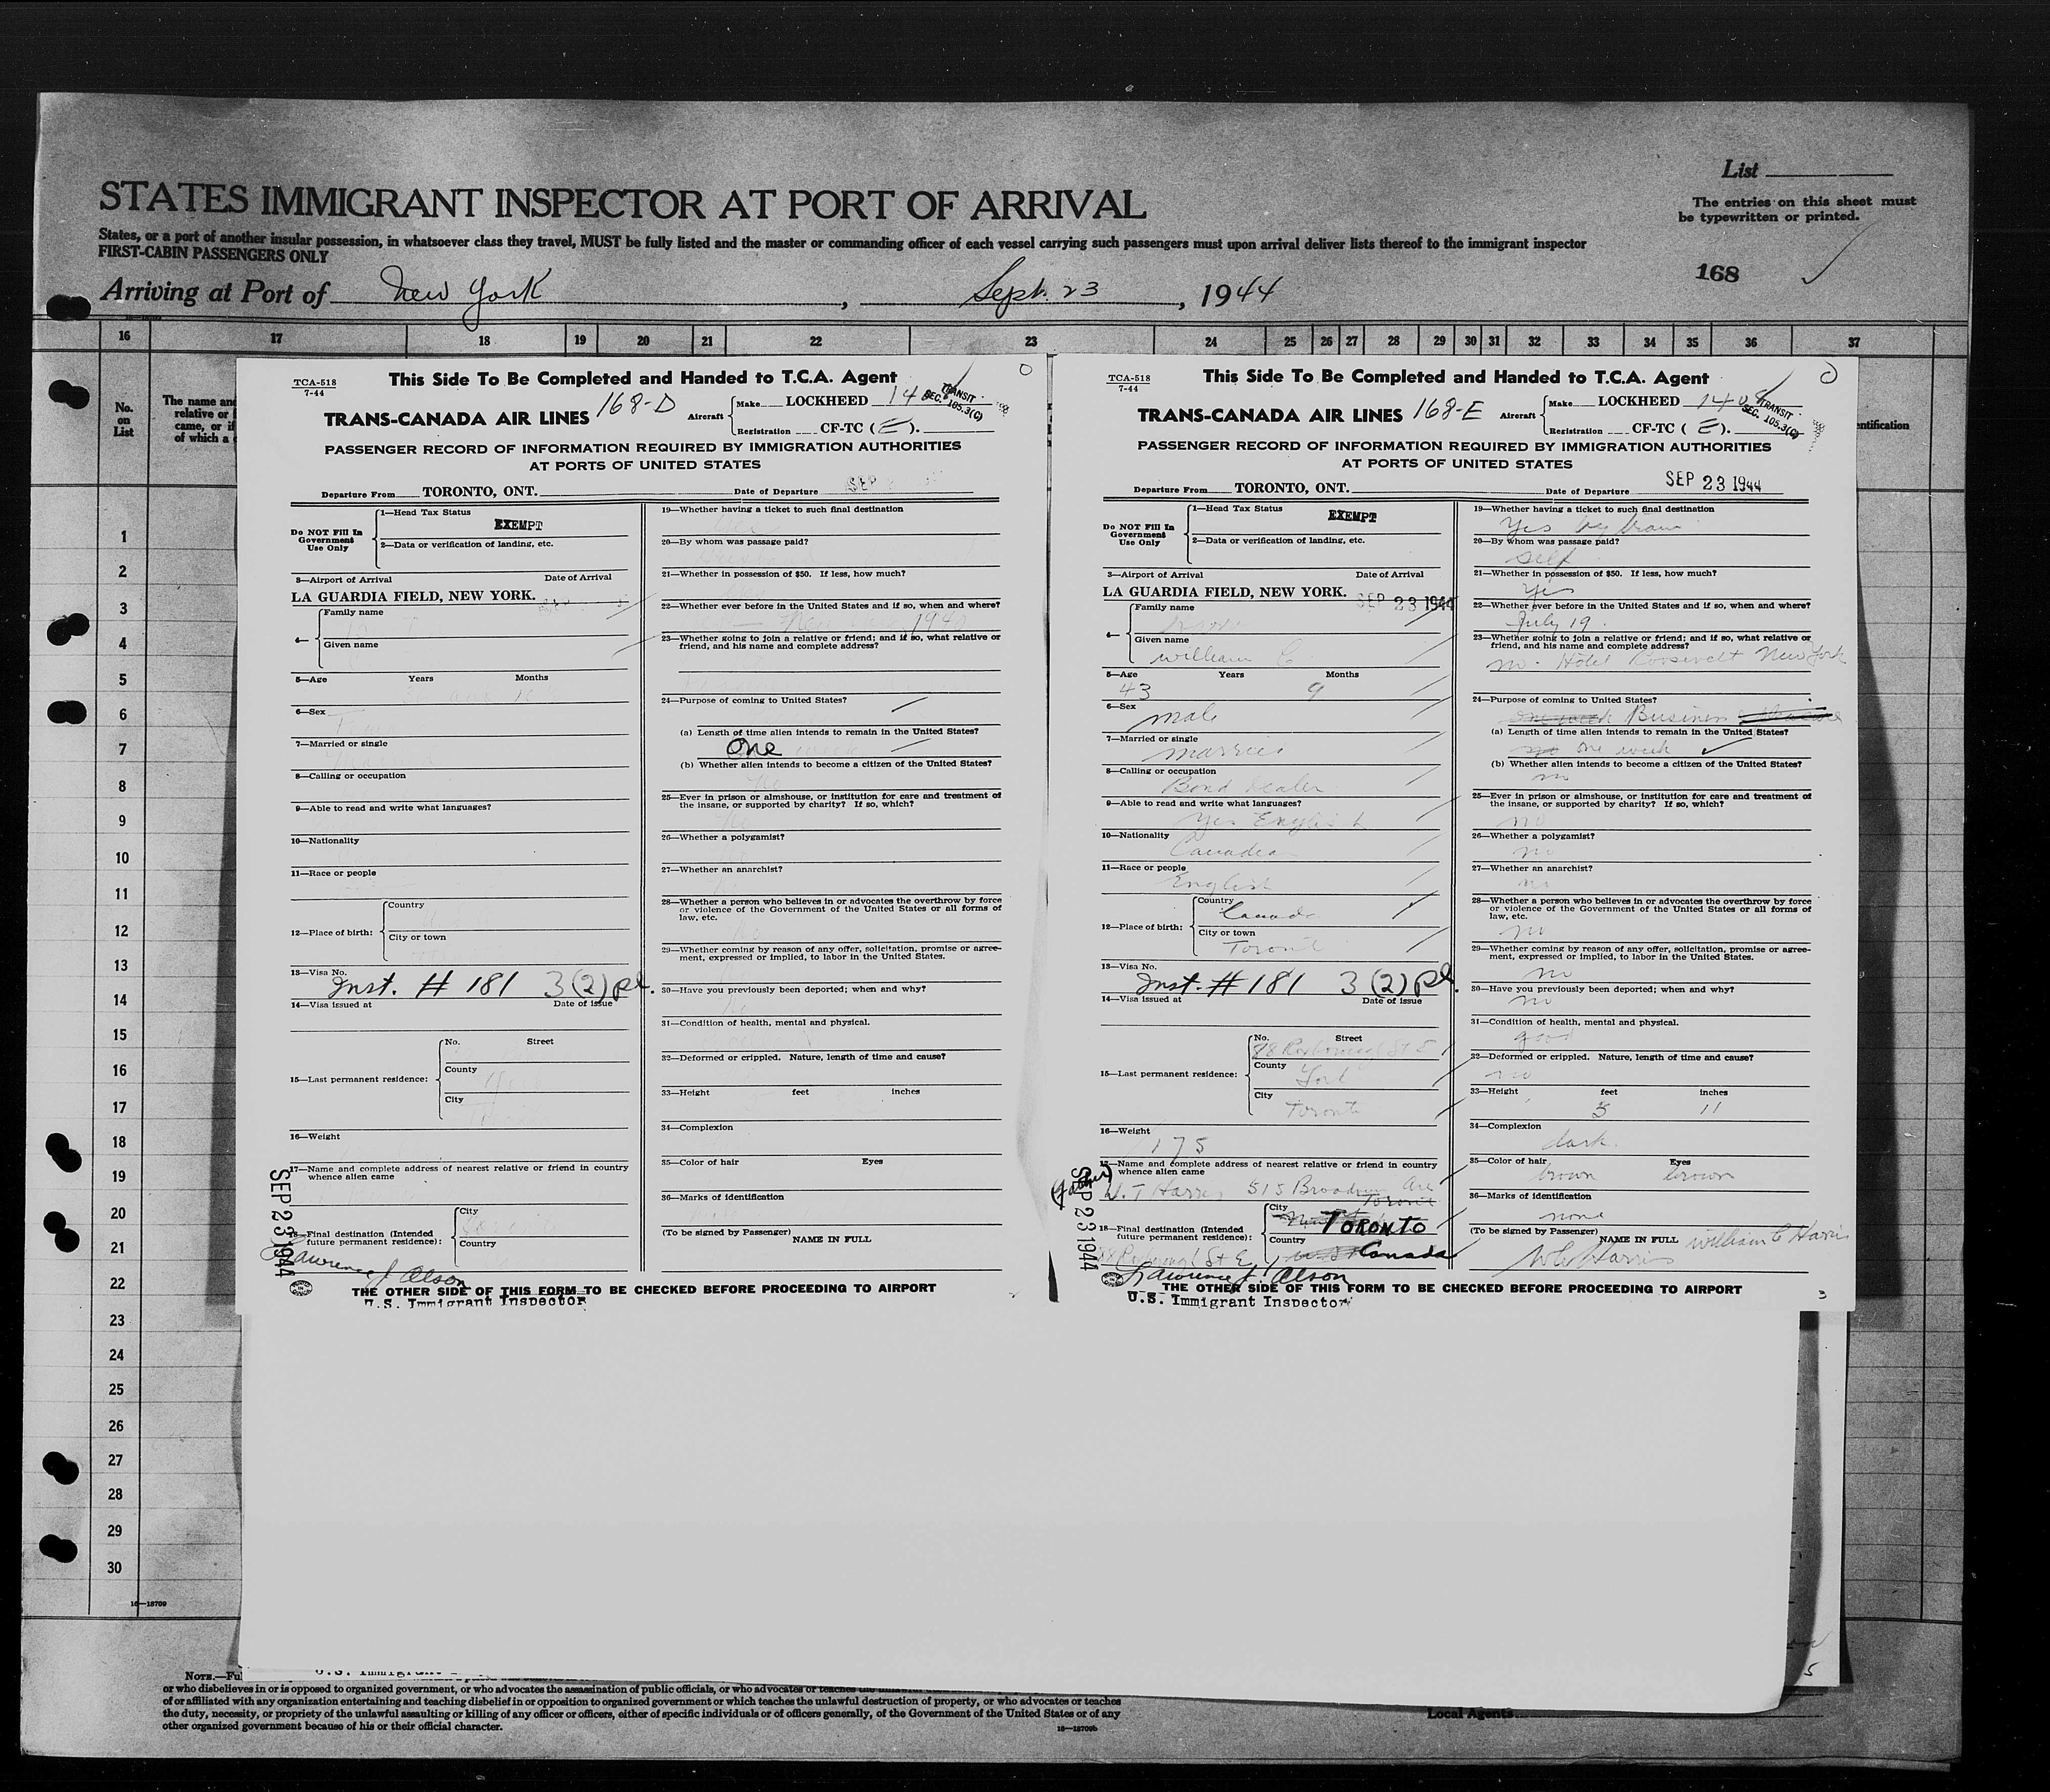 List
The entries on this sheet must
be typewritten or printed.
STATES IMMIGRANT INSPECTOR AT PORT OF ARRIVAL
States, or a port of another insular possession, in whatsoever class they travel, MUST be fully listed and the master or commanding officer of each vessel carrying such passengers must upon arrival deliver lists thereof to the immigrant inspector
FIRST-CABIN PASSENGERS ONLY
168
Arriving at Port of New York, Sept. 23, 1944
16 17 18 19 20 21 22 23 24 25 26 27 28 29 30 31 32 33 34 35 36 37
No.
on
List
The name and
relative or
came, or if
of which a
entification
1
2
3
4
5
6
7
8
9
10
11
12
13
14
15
16
17
18
19
20
21
22
23
24
25
26
27
28
29
30
16—18709
TCA-518
7-44
This Side To Be Completed and Handed to T.C.A. Agent
TRANS-CANADA AIR LINES 168-D
Aircraft Make LOCKHEED 14
TRANSIT
SEC. 105.3(C)
Registration CF-TC (E).
PASSENGER RECORD OF INFORMATION REQUIRED BY IMMIGRATION AUTHORITIES
AT PORTS OF UNITED STATES
Departure From TORONTO, ONT. Date of Departure SEP
Do NOT Fill In
Government
Use Only
1—Head Tax Status
EXEMPT
2—Data or verification of landing, etc.
3—Airport of Arrival Date of Arrival
LA GUARDIA FIELD, NEW YORK.
4— Family name
Given name
5—Age Years Months
6—Sex
7—Married or single
8—Calling or occupation
9—Able to read and write what languages?
10—Nationality
11—Race or people
12—Place of birth: Country
City or town
13—Visa No.
Inst. # 181 3(2) pl.
14—Visa issued at Date of issue
15—Last permanent residence: No. Street
County
City
16—Weight
17—Name and complete address of nearest relative or friend in country
whence alien came
18—Final destination (Intended
future permanent residence): City
Country
SEP 23 1944
Lawrence J. Olson
19—Whether having a ticket to such final destination
20—By whom was passage paid?
21—Whether in possession of $50. If less, how much?
22—Whether ever before in the United States and if so, when and where?
23—Whether going to join a relative or friend; and if so, what relative or
friend, and his name and complete address?
24—Purpose of coming to United States?
(a) Length of time alien intends to remain in the United States?
One
(b) Whether alien intends to become a citizen of the United States?
25—Ever in prison or almshouse, or institution for care and treatment of
the insane, or supported by charity? If so, which?
26—Whether a polygamist?
27—Whether an anarchist?
28—Whether a person who believes in or advocates the overthrow by force
or violence of the Government of the United States or all forms of
law, etc.
29—Whether coming by reason of any offer, solicitation, promise or agree-
ment, expressed or implied, to labor in the United States.
30—Have you previously been deported; when and why?
31—Condition of health, mental and physical.
32—Deformed or crippled. Nature, length of time and cause?
33—Height feet inches
34—Complexion
35—Color of hair Eyes
36—Marks of identification
(To be signed by Passenger) NAME IN FULL
THE OTHER SIDE OF THIS FORM TO BE CHECKED BEFORE PROCEEDING TO AIRPORT
U.S. Immigrant Inspector
TCA-518
7-44
This Side To Be Completed and Handed to T.C.A. Agent
TRANS-CANADA AIR LINES 168-E
Aircraft Make LOCKHEED 1408
TRANSIT
SEC. 105.3(C)
Registration CF-TC (E).
PASSENGER RECORD OF INFORMATION REQUIRED BY IMMIGRATION AUTHORITIES
AT PORTS OF UNITED STATES
Departure From TORONTO, ONT. Date of Departure SEP 23 1944
Do NOT Fill In
Government
Use Only
1—Head Tax Status
EXEMPT
2—Data or verification of landing, etc.
3—Airport of Arrival Date of Arrival
LA GUARDIA FIELD, NEW YORK. SEP 23 1944
4— Family name
Given name
William C
5—Age Years Months
43 9
6—Sex
male
7—Married or single
married
8—Calling or occupation
Bond Dealer
9—Able to read and write what languages?
Yes English
10—Nationality
Canadian
11—Race or people
English
12—Place of birth: Country
Canada
City or town
Toronto
13—Visa No.
Inst. # 181 3(2) pl.
14—Visa issued at Date of issue
15—Last permanent residence: No. Street
88 Roxborough St E
County
York
City
Toronto
16—Weight
175
17—Name and complete address of nearest relative or friend in country
whence alien came
(father)
W. T Harris 515 Broadview Ave
Toronto
18—Final destination (Intended
future permanent residence): City
TORONTO
Country
88 Roxborough St E Canada
SEP 23 1944
Lawrence J. Olson
19—Whether having a ticket to such final destination
Yes by train
20—By whom was passage paid?
self
21—Whether in possession of $50. If less, how much?
Yes
22—Whether ever before in the United States and if so, when and where?
July 19
23—Whether going to join a relative or friend; and if so, what relative or
friend, and his name and complete address?
no. Hotel Roosevelt New York
24—Purpose of coming to United States?
one week Business
(a) Length of time alien intends to remain in the United States?
no one week
(b) Whether alien intends to become a citizen of the United States?
no
25—Ever in prison or almshouse, or institution for care and treatment of
the insane, or supported by charity? If so, which?
no
26—Whether a polygamist?
no
27—Whether an anarchist?
no
28—Whether a person who believes in or advocates the overthrow by force
or violence of the Government of the United States or all forms of
law, etc.
no
29—Whether coming by reason of any offer, solicitation, promise or agree-
ment, expressed or implied, to labor in the United States.
no
30—Have you previously been deported; when and why?
no
31—Condition of health, mental and physical.
good
32—Deformed or crippled. Nature, length of time and cause?
no
33—Height feet inches
5 11
34—Complexion
dark
35—Color of hair Eyes
brown brown
36—Marks of identification
none
(To be signed by Passenger) NAME IN FULL William C Harris
W C Harris
THE OTHER SIDE OF THIS FORM TO BE CHECKED BEFORE PROCEEDING TO AIRPORT
U.S. Immigrant Inspector
3
5
NOTE.—Ful
or who disbelieves in or is opposed to organized government, or who advocates the assassination of public officials, or who advocates or teaches the unlawful
of or affiliated with any organization entertaining and teaching disbelief in or opposition to organized government or which teaches the unlawful destruction of property, or who advocates or teaches
the duty, necessity, or propriety of the unlawful assaulting or killing of any officer or officers, either of specific individuals or of officers generally, of the Government of the United States or of any
other organized government because of his or their official character.
16—18709b
Local Agents